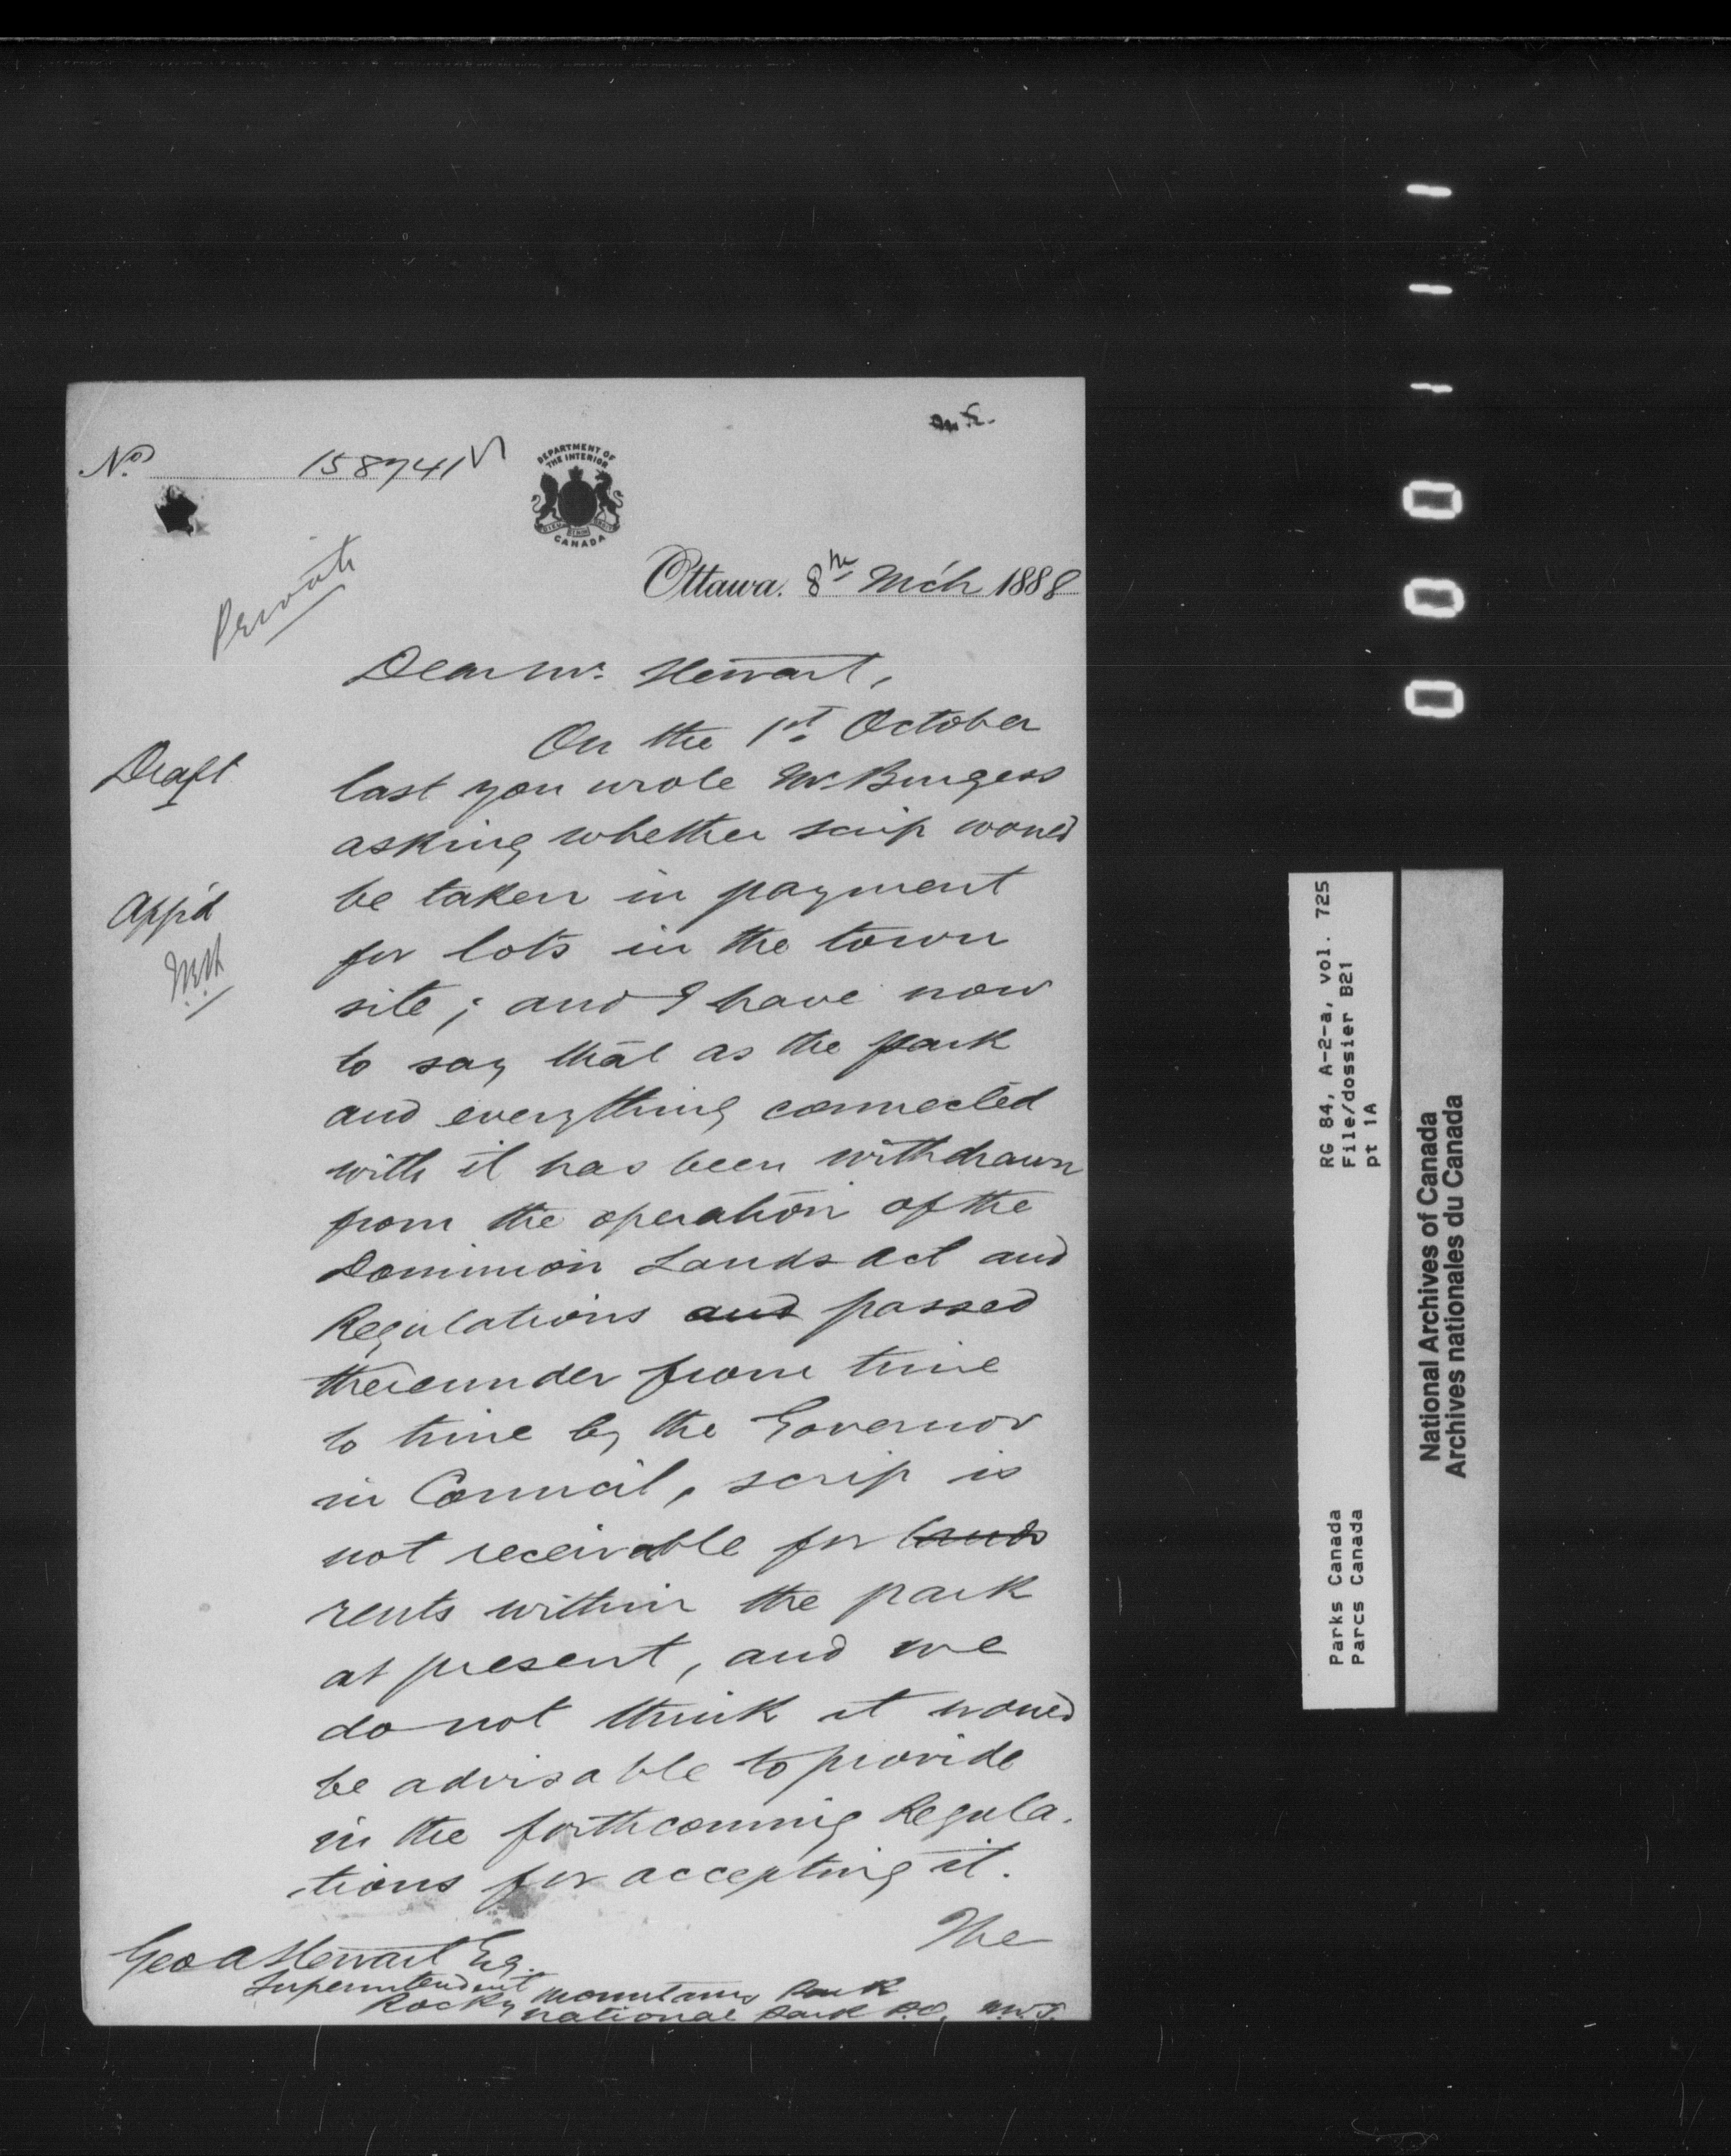 No. 158741
DEPARTMENT OF
THE INTERIOR
CANADA
Private
Ottawa. 8th Mch 1888
Dear Mr. Stewart,
Draft
On the 1st October
last you wrote Mr. Burgess
asking whether scrip would
App'd
be taken in payment
for lots in the town
site; and I have now
to say that as the park
and everything connected
with it has been withdrawn
from the operation of the
Dominion Lands Act and
Regulations and passed
thereunder from time
to time by the Governor
in Council, scrip is
not receivable for lands
rents within the park
at present, and we
do not think it would
be advisable to provide
in the forthcoming Regula-
tions for accepting it.
The
Geo A Stewart Esq.
Superintendent
Rocky Mountains Park
National Park P.O. N.W.T.
RG 84, A-2-a, vol. 725
File/dossier B21
pt 1A
Parks Canada
Parcs Canada
National Archives of Canada
Archives nationales du Canada